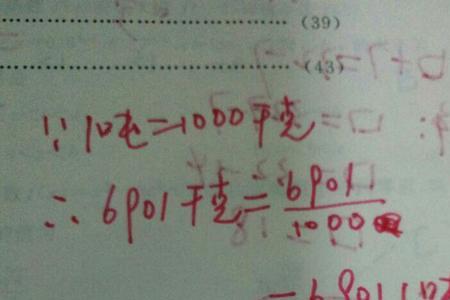 (39)
(43)
∵ 1吨=1000千克
∴ 6901千克=6901/1000
=6.901(吨